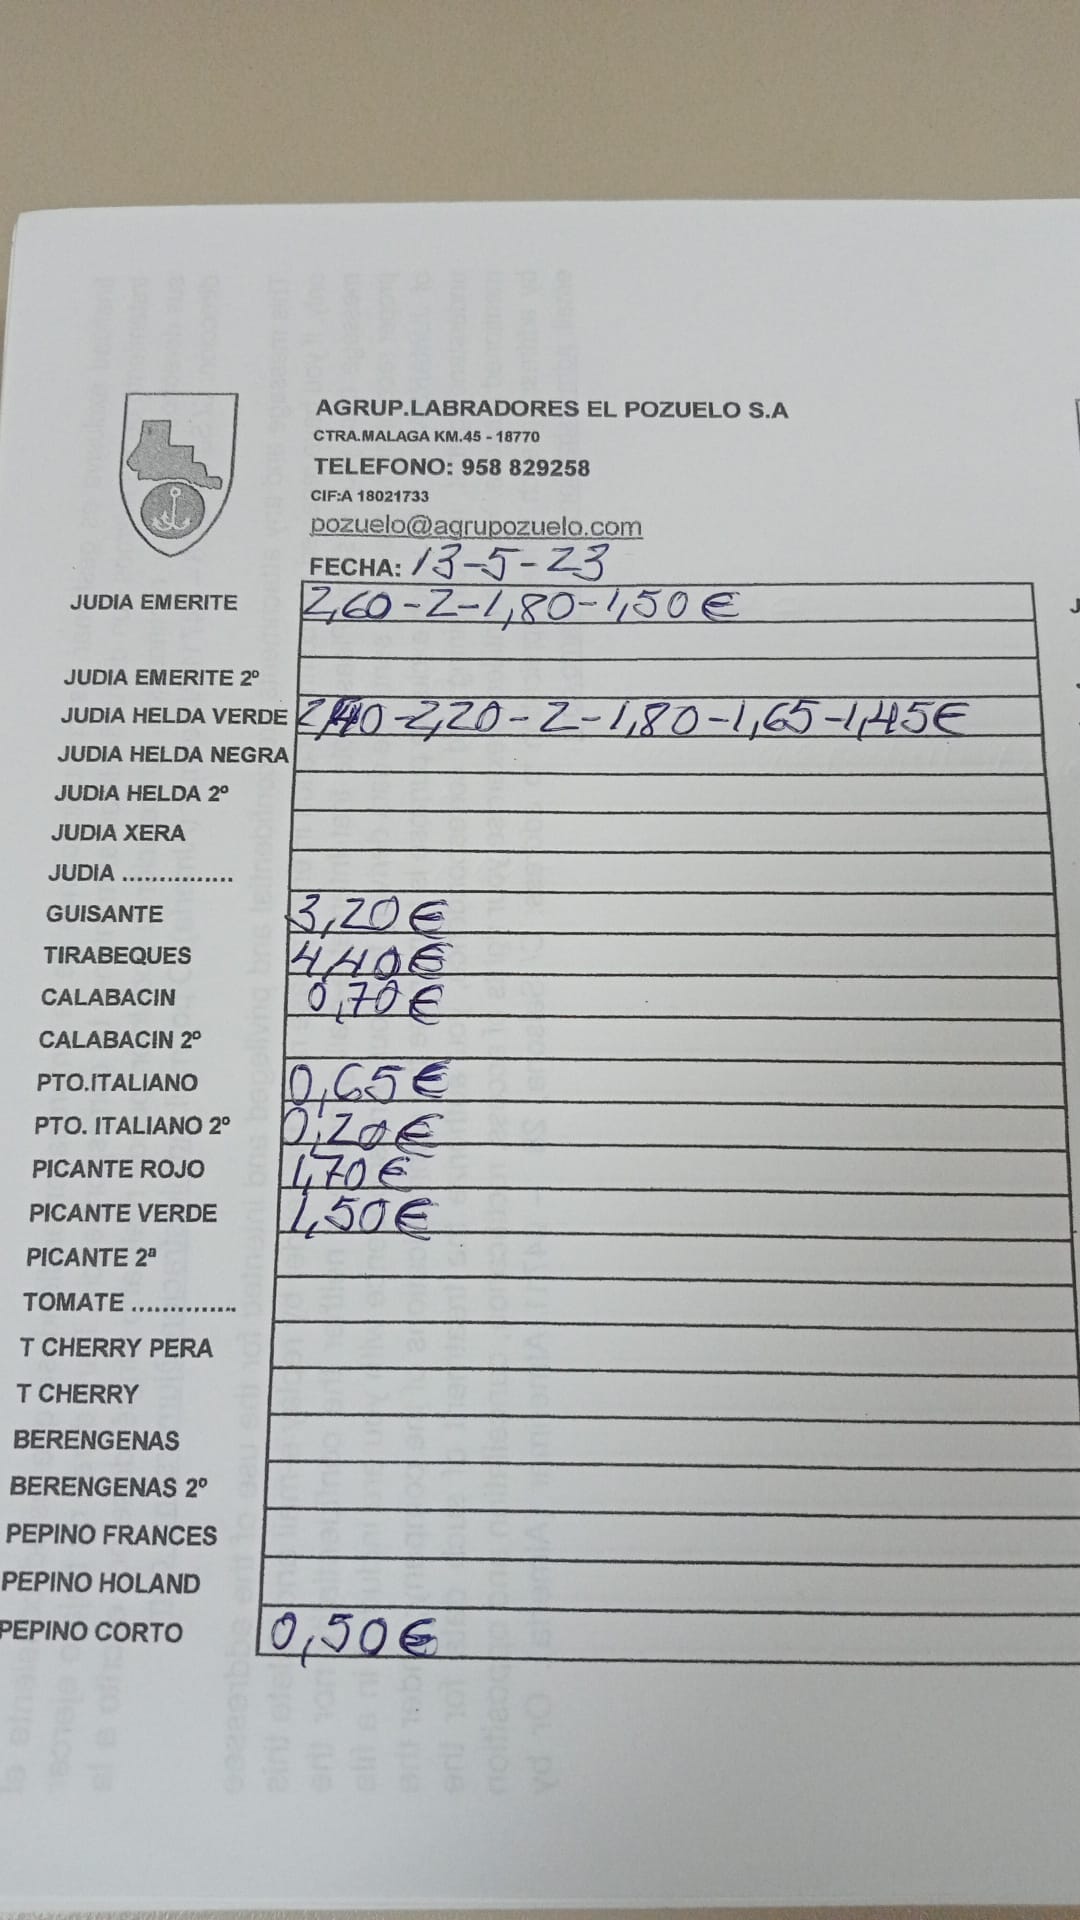 AGRUP.LABRADORES EL POZUELO S.A
CTRA.MALAGA KM.45 - 18770
TELEFONO: 958 829258
CIF:A 18021733
pozuelo@agrupozuelo.com
FECHA: 13-5-23
JUDIA EMERITE 2,60-2-1,80-1,50€
JUDIA EMERITE 2º
JUDIA HELDA VERDE 2,40-2,20-2-1,80-1,65-1,45€
JUDIA HELDA NEGRA
JUDIA HELDA 2º
JUDIA XERA
JUDIA ...............
GUISANTE 3,20€
TIRABEQUES 4,40€
CALABACIN 0,70€
CALABACIN 2º
PTO.ITALIANO 0,65€
PTO. ITALIANO 2º 0,20€
PICANTE ROJO 1,70€
PICANTE VERDE 1,50€
PICANTE 2ª
TOMATE ..............
T CHERRY PERA
T CHERRY
BERENGENAS
BERENGENAS 2º
PEPINO FRANCES
PEPINO HOLAND
PEPINO CORTO 0,50€